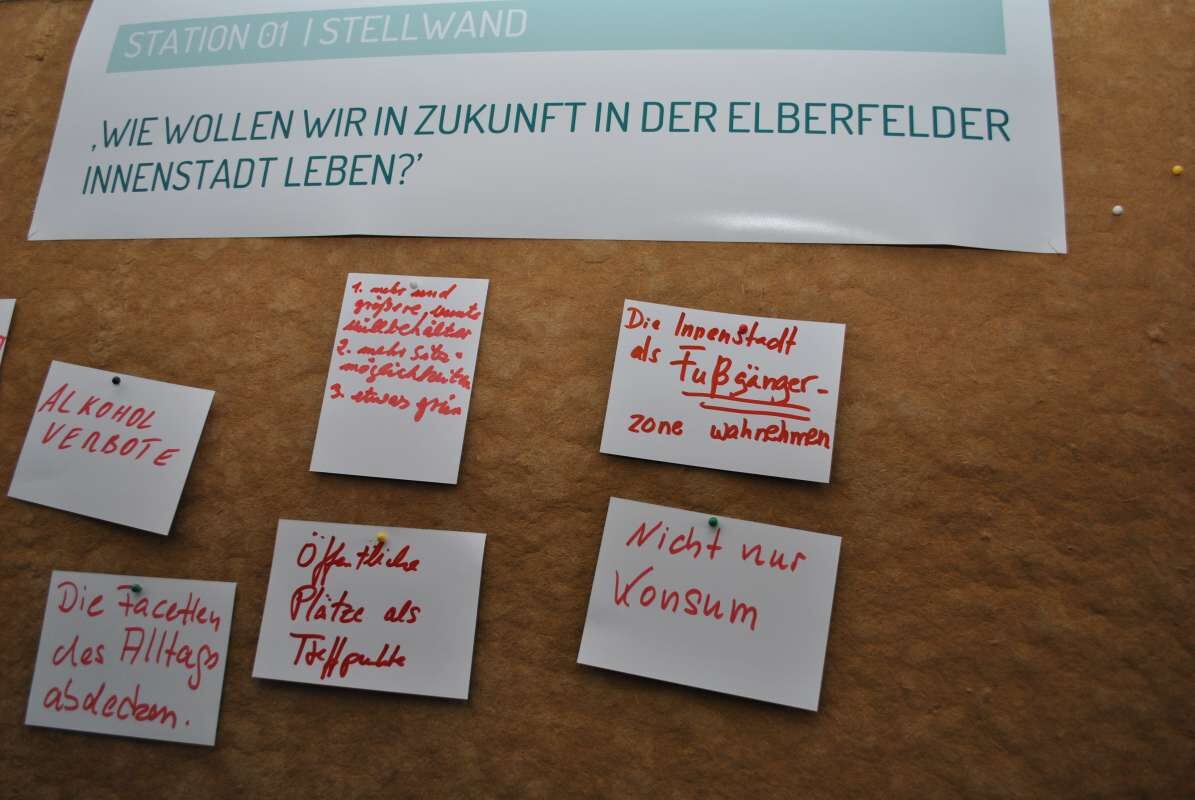 STATION 01 | STELLWAND
‚WIE WOLLEN WIR IN ZUKUNFT IN DER ELBERFELDER
INNENSTADT LEBEN?’
1. mehr und
größere, bunte
Müllbehälter
2. mehr Sitz-
möglichkeiten
3. etwas grün
Die Innenstadt
als Fußgänger-
zone wahrehmen
ALKOHOL
VERBOTE
Öffentliche
Plätze als
Treffpunkte
Nicht nur
Konsum
Die Facetten
des Alltags
abdecken.